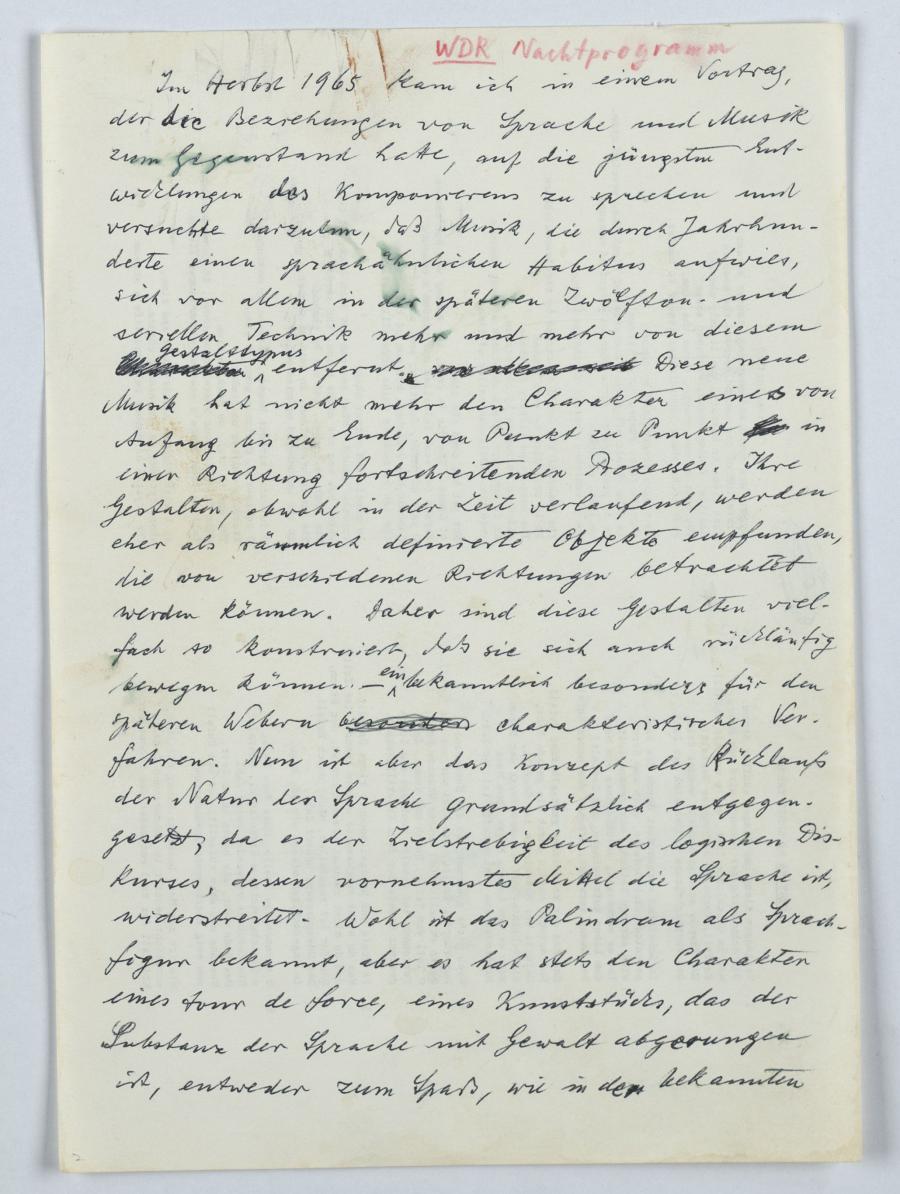 WDR Nachtprogramm
Im Herbst 1965 kam ich in einem Vortrag,
der die Beziehungen von Sprache und Musik
zum Gegenstand hatte, auf die jüngsten Ent-
wicklungen des Komponierens zu sprechen und
versuchte darzutun, daß Musik, die durch Jahrhun-
derte einen sprachähnlichen Habitus aufwies,
sich vor allem in der späteren Zwölfton- und
seriellen Technik mehr und mehr von diesem
Gestalttypus
entfernt. Diese neue
Musik hat nicht mehr den Charakter eines von
Anfang bis zu Ende, von Punkt zu Punkt in
einer Richtung fortschreitenden Prozesses. Ihre
Gestalten, obwohl in der Zeit verlaufend, werden
eher als räumlich definierte Objekte empfunden,
die von verschiedenen Richtungen betrachtet
werden können. Daher sind diese Gestalten viel-
fach so konstruiert, daß sie sich auch rückläufig
bewegen können. — ein bekanntlich besonders für den
späteren Webern besonders charakteristisches Ver-
fahren. Nun ist aber das Konzept des Rücklaufs
der Natur der Sprache grundsätzlich entgegen-
gesetzt, da es der Zielstrebigkeit des logischen Dis-
kurses, dessen vornehmstes Mittel die Sprache ist,
widerstreitet. Wohl ist das Palindrom als Sprach-
figur bekannt, aber es hat stets den Charakter
eines tour de force, eines Kunststücks, das der
Substanz der Sprache mit Gewalt abgerungen
ist, entweder zum Spaß, wie in dem bekannten
2